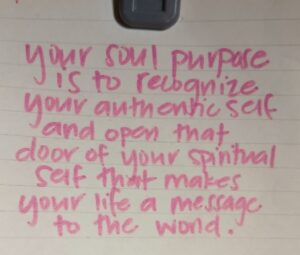 your soul purpose
is to recognize
your authentic self
and open that
door of your spiritual
self that makes
your life a message
to the world.